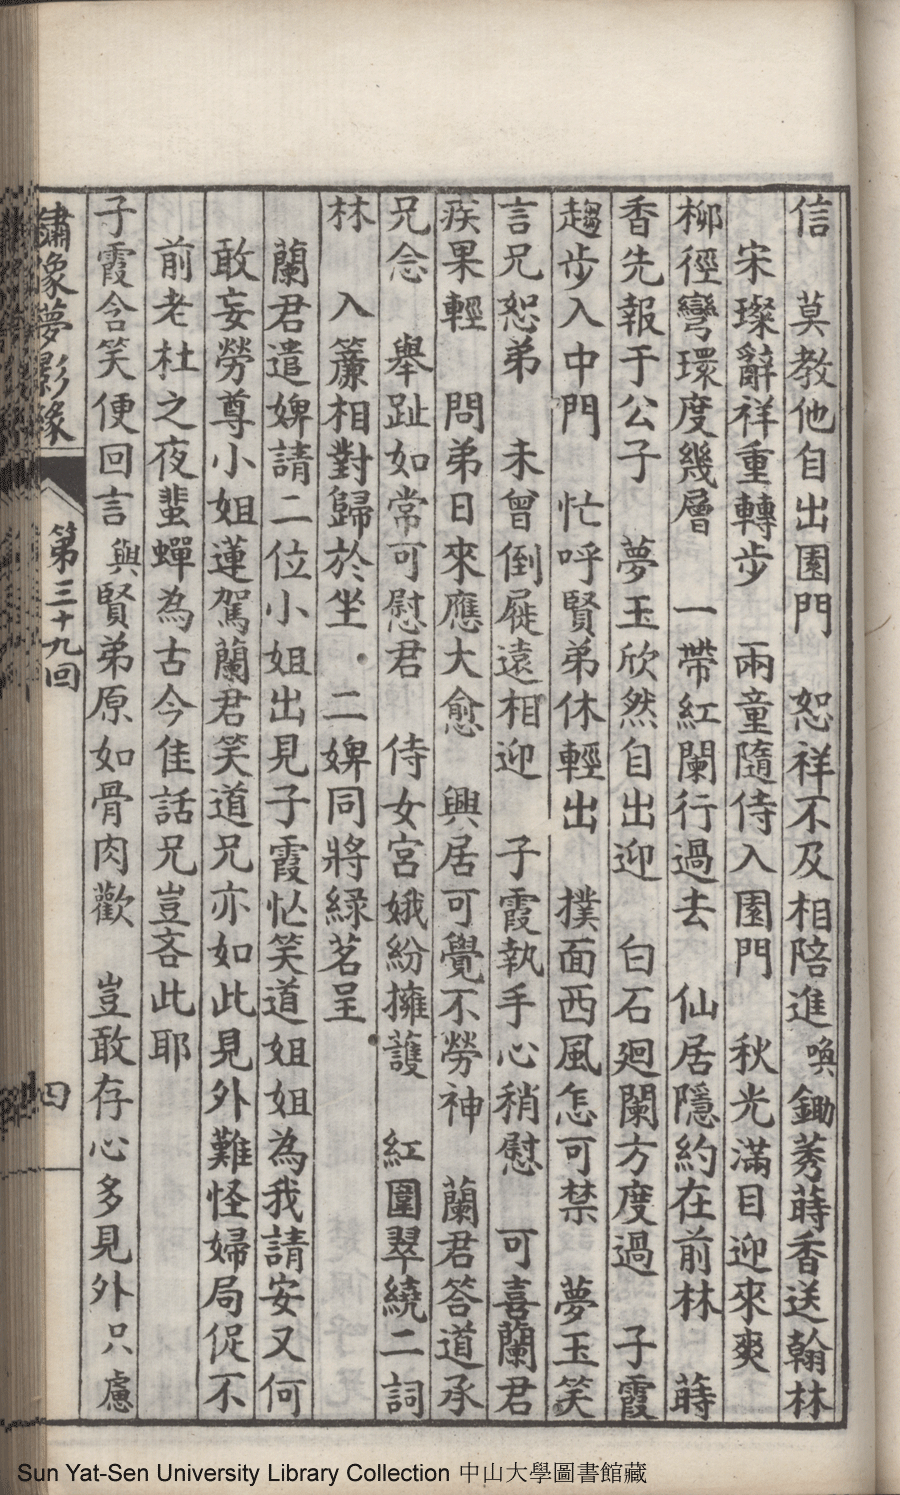 信　莫教他自出園門　恕祥不及相陪進喚鋤莠蒔香送翰林
宋璨辭祥重轉步　兩童隨侍入園門　秋光滿目迎來爽
柳徑彎環度幾層　一帶紅闌行過去　仙居隱約在前林　蒔
香先報于公子　夢玉欣然自出迎　白石廻闌方度過　子霞
趨步入中門　忙呼賢弟休輕出　撲面西風怎可禁　夢玉笑
言兄恕弟　未曾倒屣遠相迎　子霞執手心稍慰　可喜蘭君
疾果輕　問弟日來應大愈　興居可覺不勞神　蘭君答道承
兄念　舉趾如常可慰君　侍女宮娥紛擁護　紅圍翠繞二詞
林　入簾相對歸於坐　二婢同將綠茗呈
蘭君遣婢請二位小姐出見子霞忙笑道姐姐為我請安又何
敢妄勞尊小姐蓮駕蘭君笑道兄亦如此見外難怪婦局促不
前老杜之夜蜚蟬為古今佳話兄豈吝此耶
子霞含笑便回言與賢弟原如骨肉歡　豈敢存心多見外只慮
繡像夢影緣　第三十九回　四
Sun Yat-Sen University Library Collection 中山大學圖書館藏